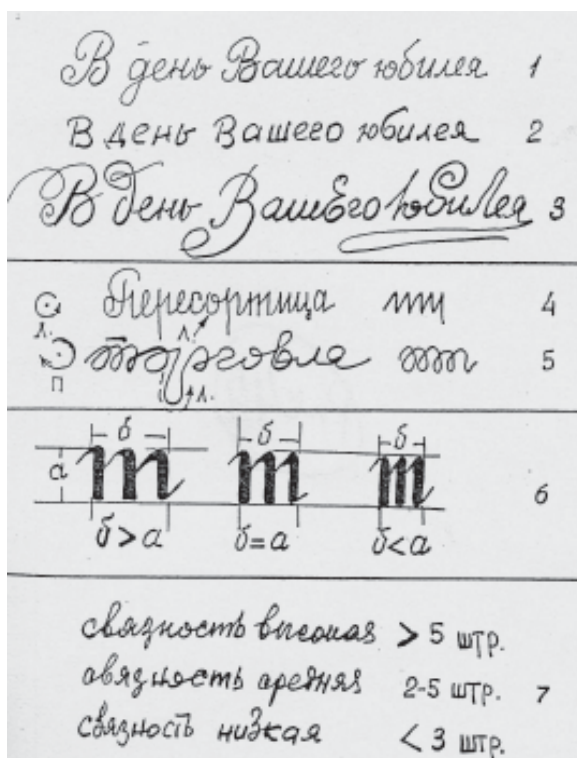 В день Вашего юбилея 1
В день Вашего юбилея 2
В день ВашЕго юбиЛея 3
Пересортица тт 4
л.
л.
торговля тт 5
П
л.
б б б
а m m m 6
б > а б = а б < а
связность высокая > 5 штр.
связность средняя 2-5 штр. 7
связность низкая < 3 штр.